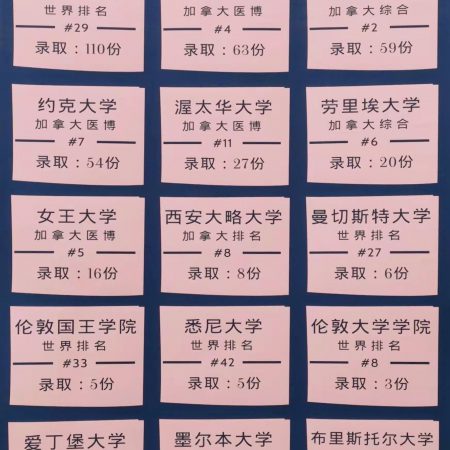 世界排名
加拿大医博
加拿大综合
#29
#4
#2
录取：110份
录取：63份
录取：59份
约克大学
渥太华大学
劳里埃大学
加拿大医博
加拿大医博
加拿大综合
#7
#11
#6
录取：54份
录取：27份
录取：20份
女王大学
西安大略大学
曼切斯特大学
加拿大医博
加拿大排名
世界排名
#5
#8
#27
录取：16份
录取：8份
录取：6份
伦敦国王学院
悉尼大学
伦敦大学学院
世界排名
世界排名
世界排名
#33
#42
#8
录取：5份
录取：5份
录取：3份
爱丁堡大学
墨尔本大学
布里斯托尔大学